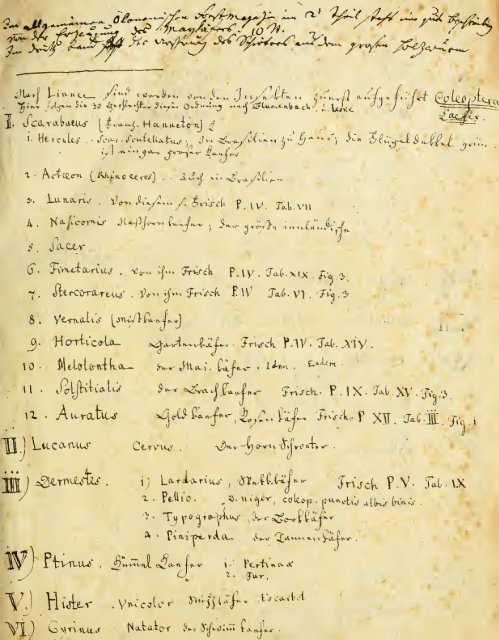 Im allgemeinen Ökonomischen Forst Magazin im 2 Theil steht ein gute Beschreibung
von der Erzeugung des Maykäfers. 10 St.
Im dritt Band ist die des Schröters aus dem großen Holzwurm
Nach Linnee sind worden von den Insekten zuerst aufgeführt Coleoptera
Hier folgen die 30 Geschlechter dieser Ordnung nach Blumenbach, u. Leske Käfer.
I. Scarabaeus (franz. Hanneton)
1. Hercules. Scar. Scutellatus, In Brasilien zu Haus, die Flügeldeckel grün.
ist ein gar großer Kaefer
2. Actaeon (Rhinoceros). Auch in Brasilien
3. Lunaris. Von diesem s. Frisch P. IV. Tab. VII
4. Nasicornis Nashornkaefer, der größte innländische
5. Sacer
6. Fimetarius. von ihm Frisch P. IV. Tab. XIX. Fig. 3.
7. Stercorareus. Von ihm Frisch P. IV Tab. VI. Fig. 3
8. Vernalis (Mistkaefer)
9. Horticola Gartenkäfer. Frisch P. IV. Tab. XIV.
10. Melolontha der Mai. käfer. Idem.
11. Solstitialis der Brachkaefer Frisch. P. IX. Tab. XV. Fig. 3.
12. Auratus Goldkaefer, Rosenkäfer Frisch. P XII. Tab. III. Fig. 1
II) Lucanus Cervus. Der Hornschroeter.
III) Dermestes. 1) Lardarius, Speckkäfer Frisch P. V. Tab. IX
2. Pellio. niger, coleop. punctis albis binis.
3. Typographus, der Borkkäfer
4. Piniperda der Tannenkäfer.
IV) Ptinus. Kaefer 1. Pertinax
2. Fur.
V.) Hister. Unicolor
VI) Gyrinus Natator der Schwimmkaefer.